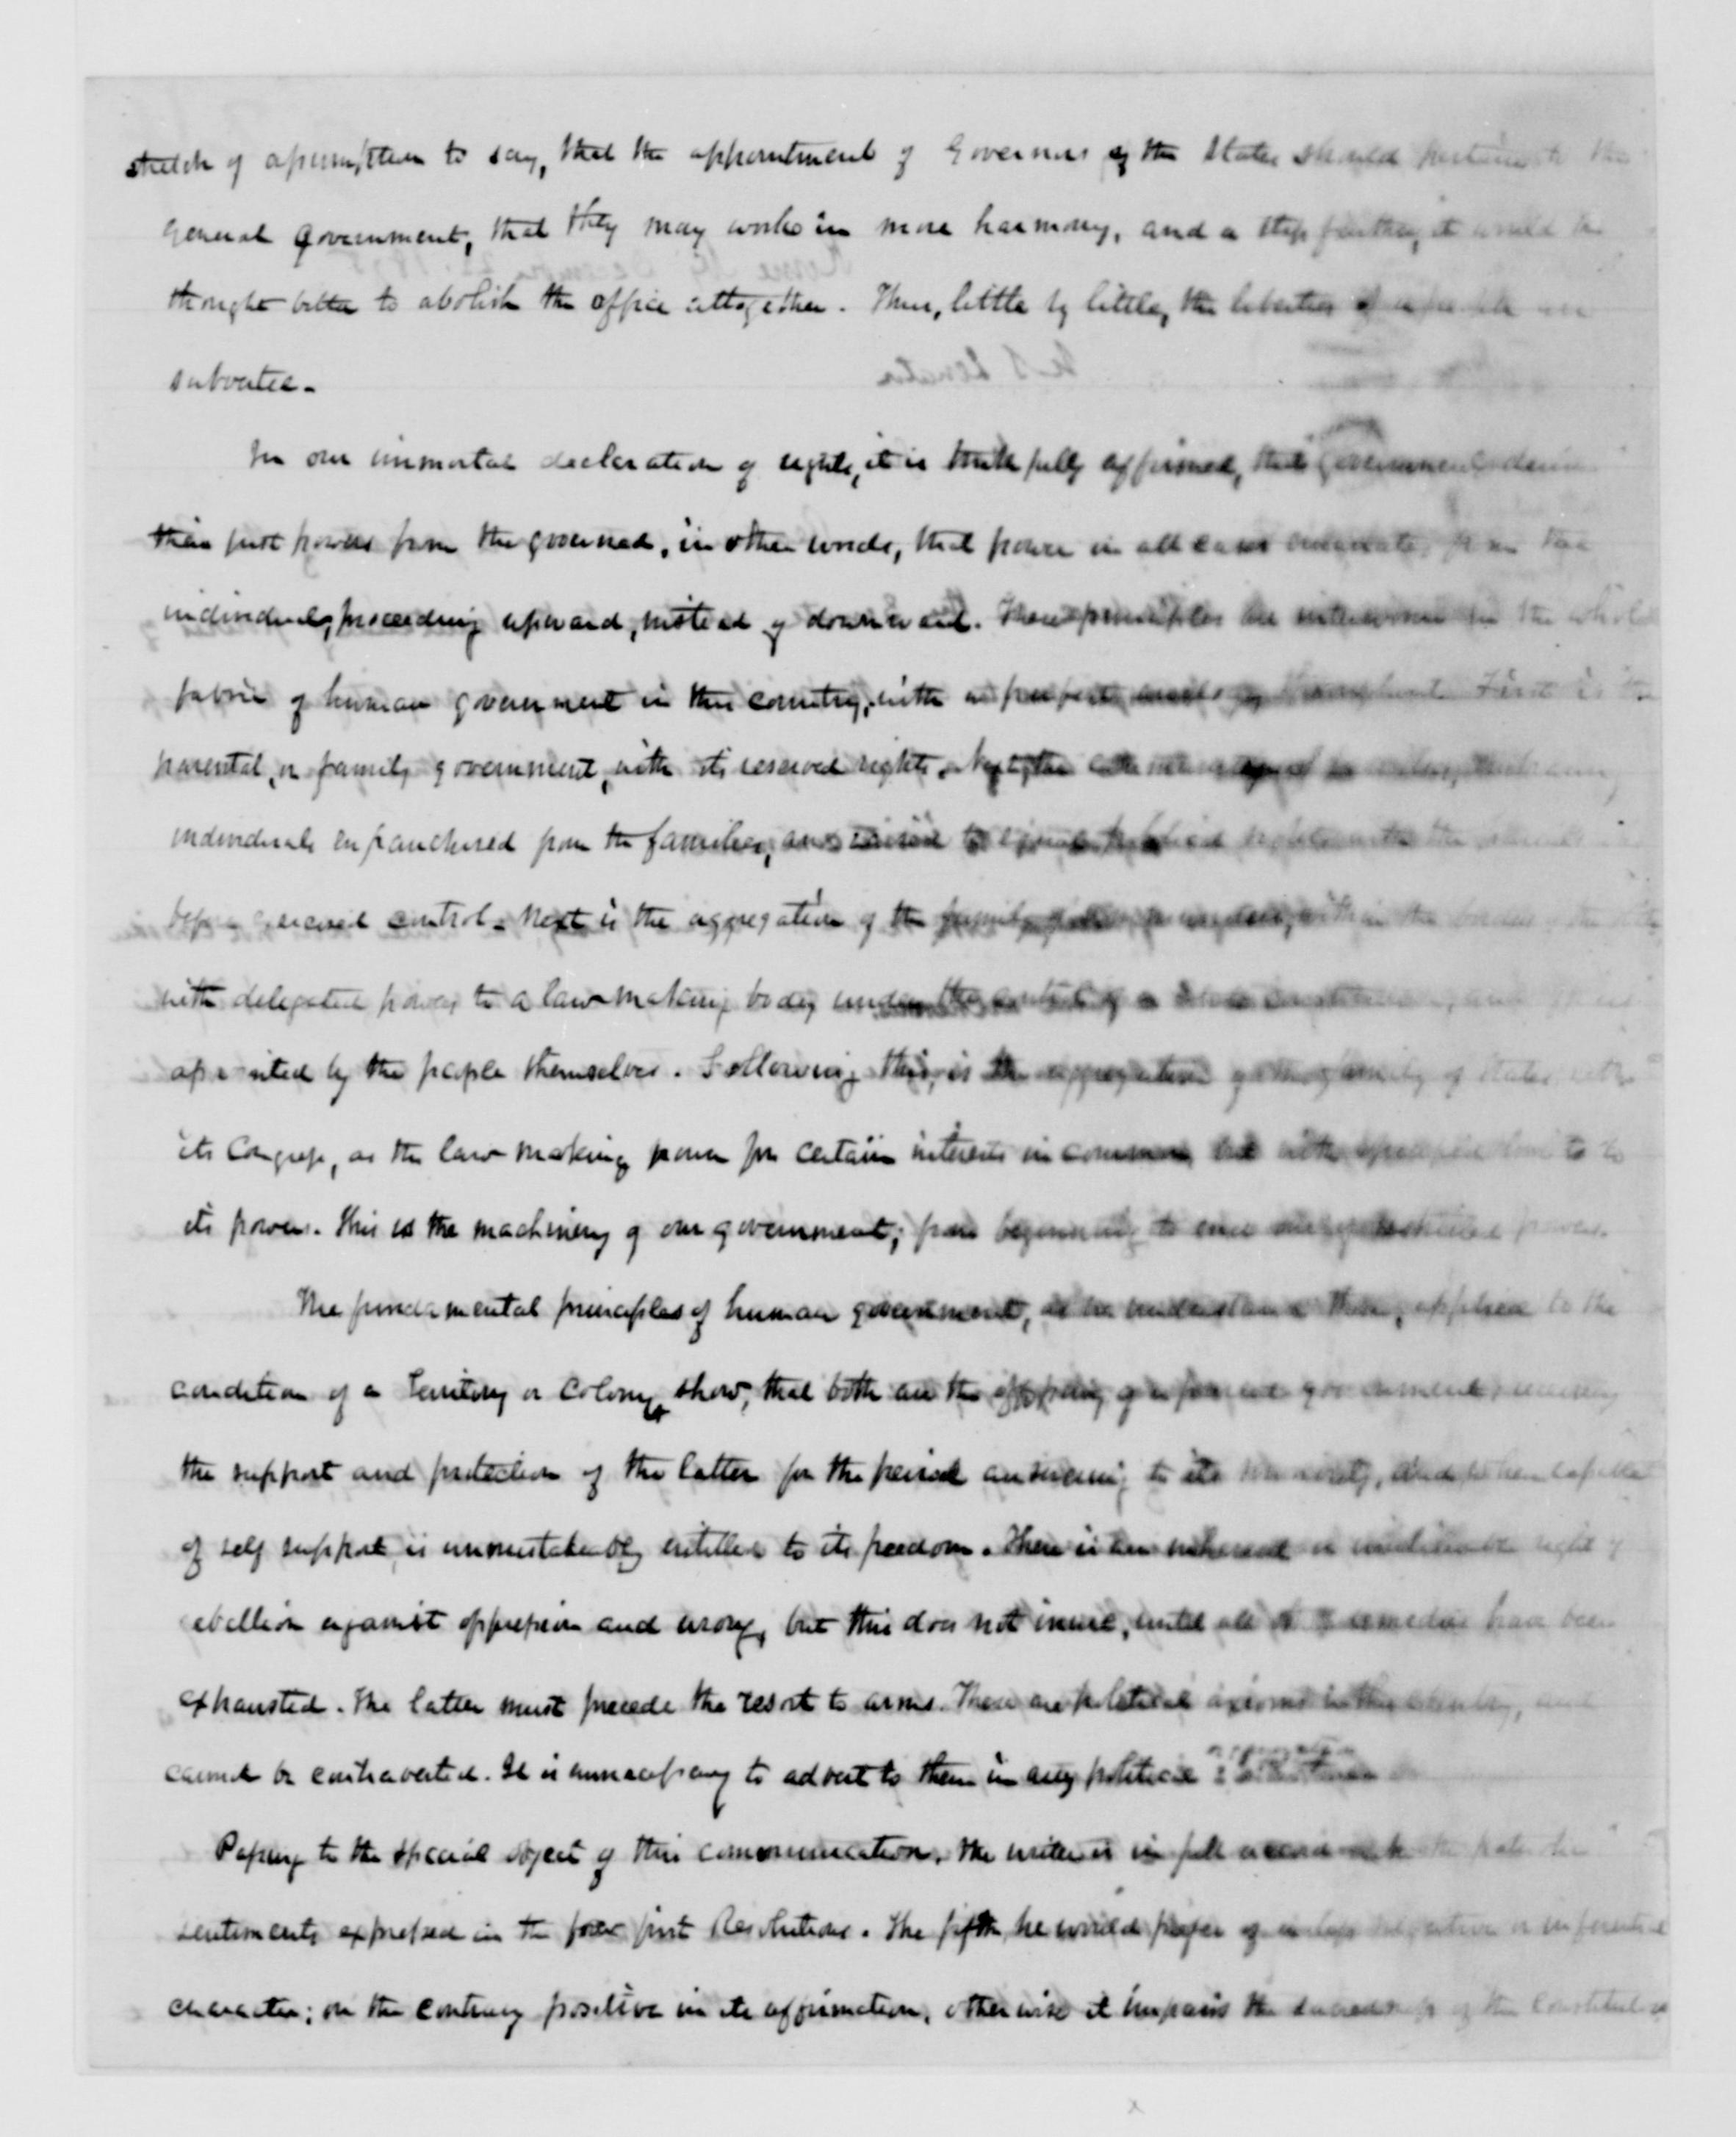 stretch of assumption to say, that the appointment of Governors of the States should pertain to the
general government, that they may work in more harmony, and a step further, it would be
thought better to abolish the office altogether. Thus, little by little, the liberties of a people are
subverted.
In our immortal declaration of rights, it is truthfully affirmed, that Governments derive
their just powers from the governed, in other words, that power in all cases emanates from the
individual, proceeding upward, instead of downward. These principles are interwoven in the whole
fabric of human government in this country, with a perfect throughout. First is the
parental, or family government, with its reserved rights. Next, the
individuals enfranchised from the families, and raised to equal political rights with the
general control. Next is the aggregation of the family within the borders of the
with delegated powers to a law making body under the control of a State constitution, and
appointed by the people themselves. Following this, is the aggregation of the family of States, with
its Congress, as the law making power for certain interests in common, but with to
its powers. This is the machinery of our government; from beginning to end powers.
The fundamental principles of human government, as we understand them, applied to the
condition of a Territory or Colony, show, that both are the offspring of a parent government, receiving
the support and protection of the latter for the period answering to its minority, and when capable
of self support, is unmistakably entitled to its freedom. There is an inherent or inalienable right of
rebellion against oppression and wrong, but this does not inure, until all other remedies have been
exhausted. The latter must precede the resort to arms. These are political axioms in this country, and
cannot be controverted. It is unnecessary to advert to them in any political
Passing to the special object of this communication, the writer is in full accord with the patriotic
sentiments expressed in the four first Resolutions. The fifth, he would prefer of a less negative or inferential
character; on the contrary positive in its affirmation, otherwise it impairs the sacredness of the Constitution